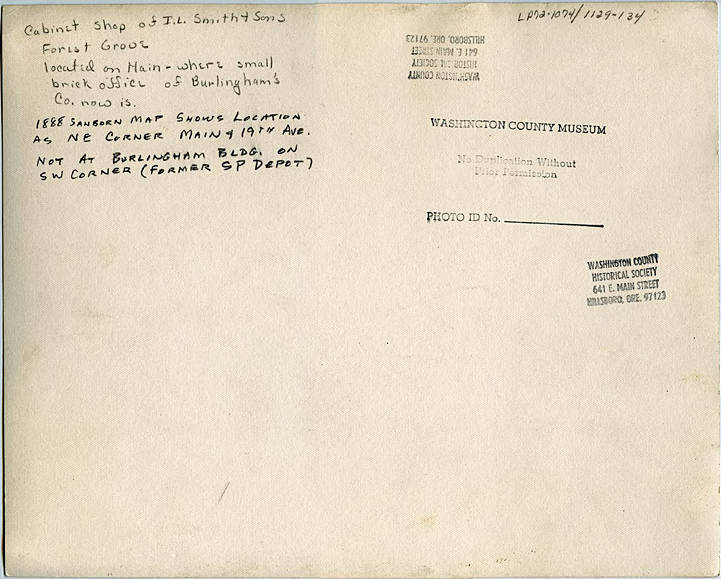 Cabinet Shop of I.L. Smith & Sons
Forest Grove
located on Main - where small
brick office of Burlingham's
Co. now is.
1888 SANBORN MAP SHOWS LOCATION
AS NE CORNER MAIN & 19TH AVE.
NOT AT BURLINGHAM BLDG. ON
SW CORNER (FORMER SP DEPOT)
LP72-1074/1129-134
WASHINGTON COUNTY
HISTORICAL SOCIETY
641 E. MAIN STREET
HILLSBORO, ORE. 97123
WASHINGTON COUNTY MUSEUM
No Duplication Without
Prior Permission
PHOTO ID No.
WASHINGTON COUNTY
HISTORICAL SOCIETY
641 E. MAIN STREET
HILLSBORO, ORE. 97123